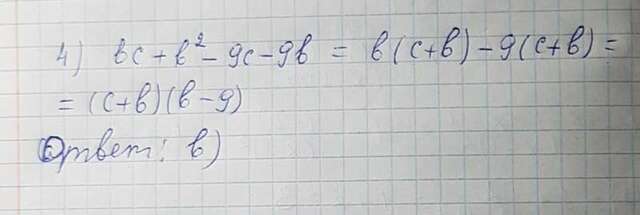 4) bc + b² - 9c - 9b = b(c+b) - 9(c+b) =
= (c+b)(b-9)
Ответ: в)